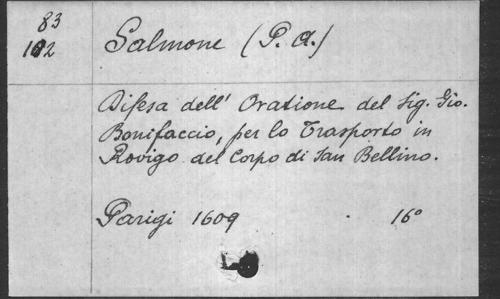 83
102
Salmone (P. A.)
Difesa dell' Oratione del Sig. Gio.
Bonifaccio, per lo Trasporto in
Rovigo del Corpo di San Bellino.
Parigi 1609 16°